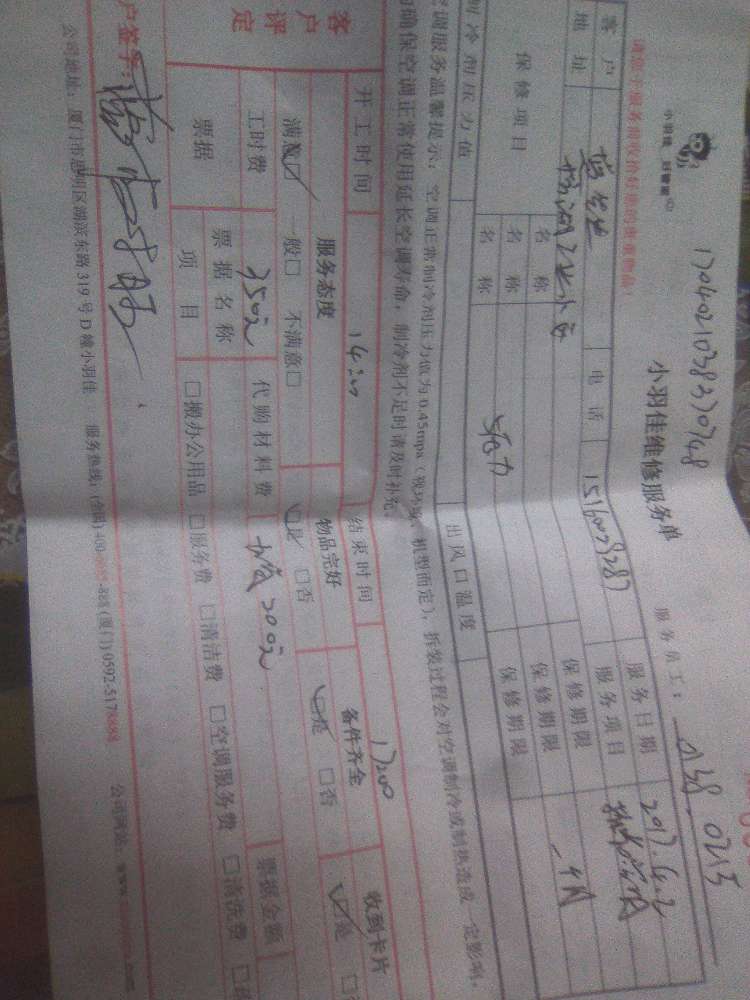 1704021038370748
小羽佳维修服务单
服务员工: 0138 0215
请您于服务前收拾好您的贵重物品!
客户 电话 15160078287 服务日期 2017.4.2
地址 服务项目
保修项目 名称 保修期限
名称 保修期限
名称 保修期限
制冷剂压力值 出风口温度
空调服务温馨提示: 空调正常制冷剂压力值为0.45mpa(视环境、机型而定), 拆装过程会对空调制冷或制热造成一定影响,
确保空调正常使用延长空调寿命, 制冷剂不足时请及时补充。
开工时间 14:00 结束时间 17:00
客户评定 服务态度 物品完好 备件齐全 收到卡片
满意☑ 一般□ 不满意□ ☑是 □否 ☑是 □否 ☑是
工时费 350元 代购材料费 200元
票据 票据名称 票据金额
项目 □搬办公用品 □服务费 □清洁费 □空调服务费 □清洗费
户签字:
公司地址: 厦门市思明区湖滨东路319号D幢小羽佳 服务热线: (全国)400 888 (厦门)0592-5178888 公司网站: www.